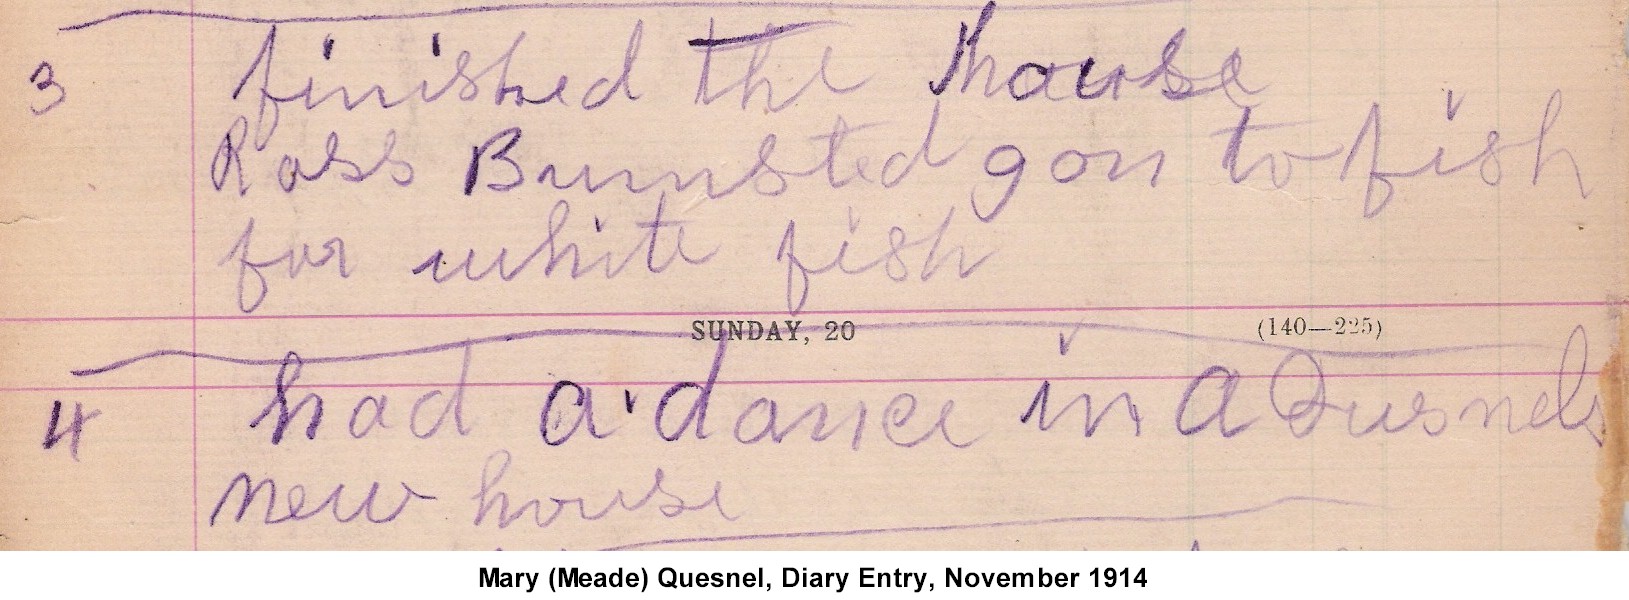 3 finished the house
Ross Bumsted gon to fish
for white fish
SUNDAY, 20 (140—225)
4 had a dance in A Quesnels
new house
Mary (Meade) Quesnel, Diary Entry, November 1914